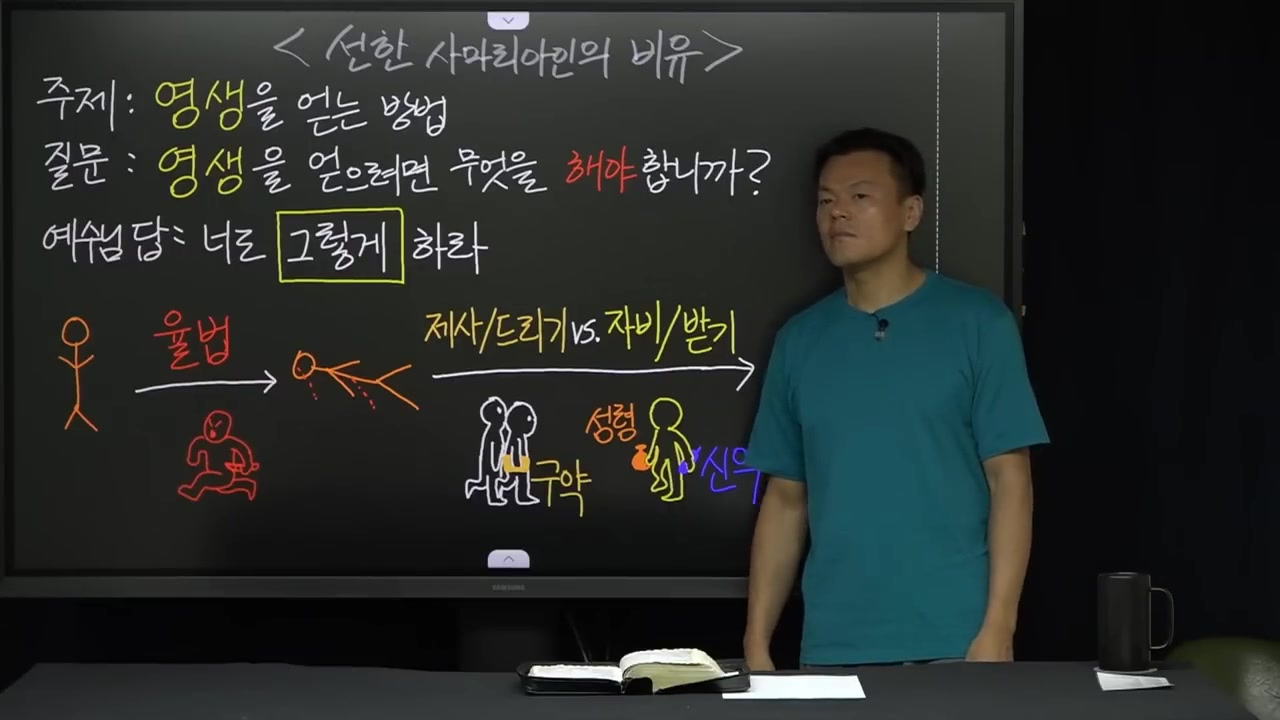 < 선한 사마리아인의 비유 >
주제: 영생을 얻는 방법
질문: 영생을 얻으려면 무엇을 해야 합니까?
예수님 답: 너도 그렇게 하라
율법
제사/드리기 vs. 자비/받기
성령
구약
신약
SAMSUNG